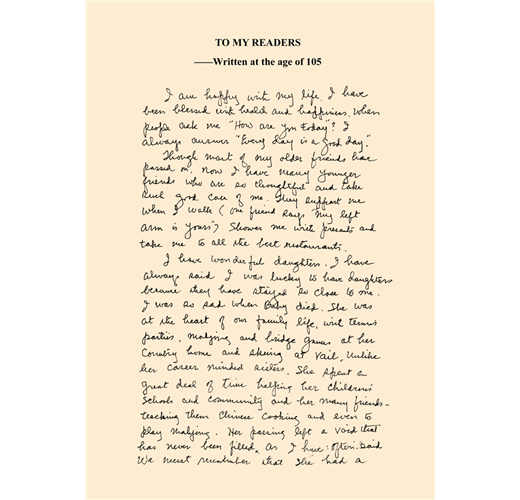 TO MY READERS
——Written at the age of 105
I am happy with my life. I have
been blessed with health and happiness. When
people ask me "How are you today"? I
always answer "Every day is a good day."
Though most of my older friends have
passed on, now I have many younger
friends who are so thoughtful and take
such good care of me. They support me
when I walk (one friend says "my left
arm is yours") Shower me with presents and
take me to all the best restaurants.
I have wonderful daughters. I have
always said I was lucky to have daughters
because they have stayed so close to me.
I was so sad when died. She was
at the heart of our family life, with tennis
parties, mahjong and bridge games at her
Country home and skiing at Vail. Unlike
her career minded sisters. She spent a
great deal of time helping her children's
Schools and community and her many friends-
teaching them Chinese Cooking and even to
play mahjong. Her passing left a void that
has never been filled. As I have often said
We must remember that she had a